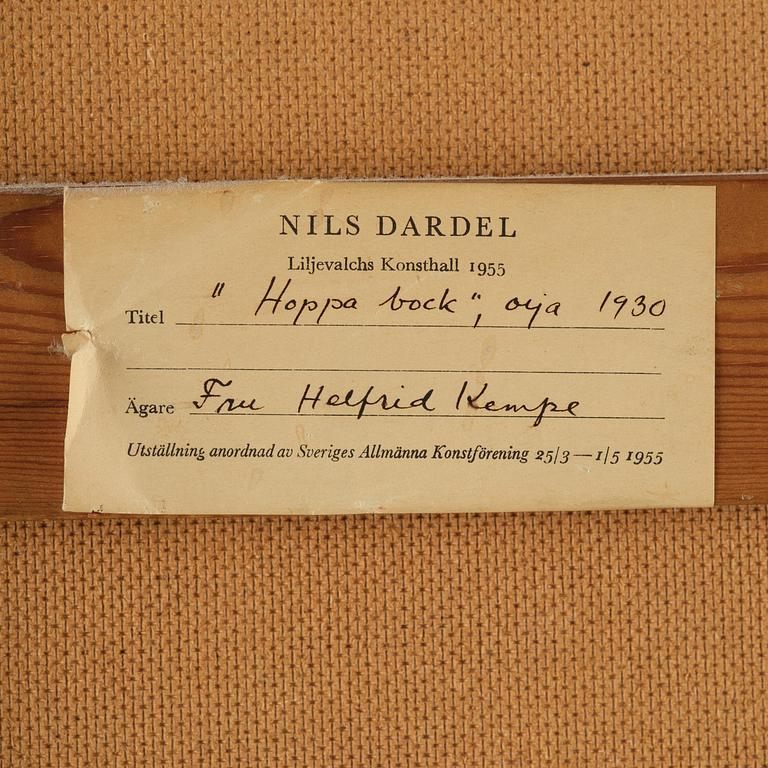 NILS DARDEL
Liljevalchs Konsthall 1955
Titel "Hoppa bock", olja 1930
Ägare Fru Helfrid Kempe
Utställning anordnad av Sveriges Allmänna Konstförening 25/3—1/5 1955